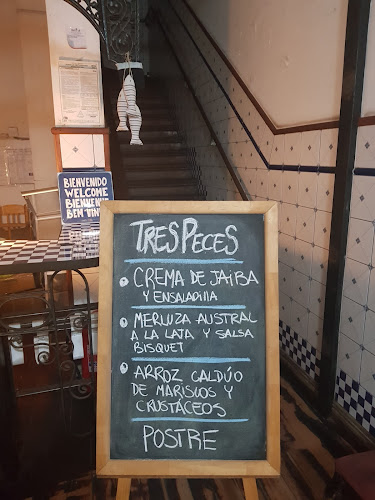 BIENVENIDO
WELCOME
BIENVENUE
TRES PECES
CREMA DE JAIBA
Y ENSALADILLA
MERLUZA AUSTRAL
A LA LATA Y SALSA
BISQUET
ARROZ CALDÚO
DE MARISCOS Y
CRUSTÁCEOS
POSTRE